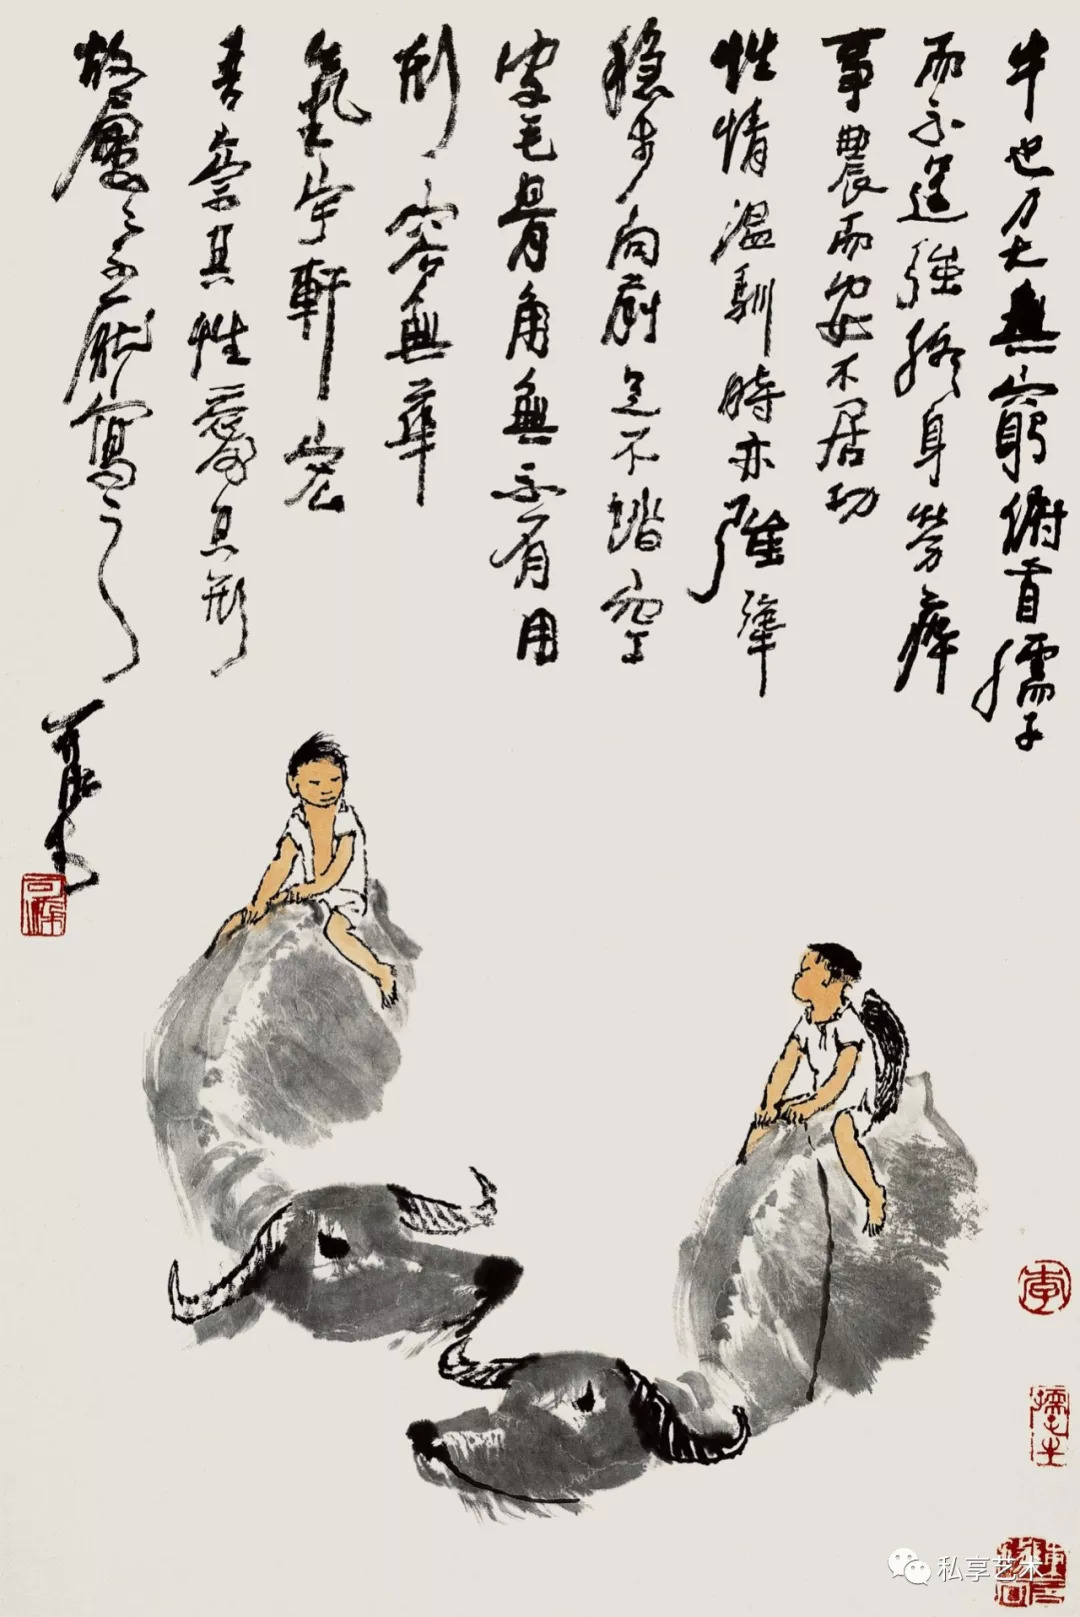 牛也力大無窮俯首孺子
而不逞强終身劳瘁
事農而安不居功
性情温馴時亦强犟
稳步向前足不踏空
皮毛骨角無不有用
形容無華
氣宇軒宏
吾崇其性爱其形
故屢屢不厭寫之
可染
可染
李
孺子牛
私享艺术